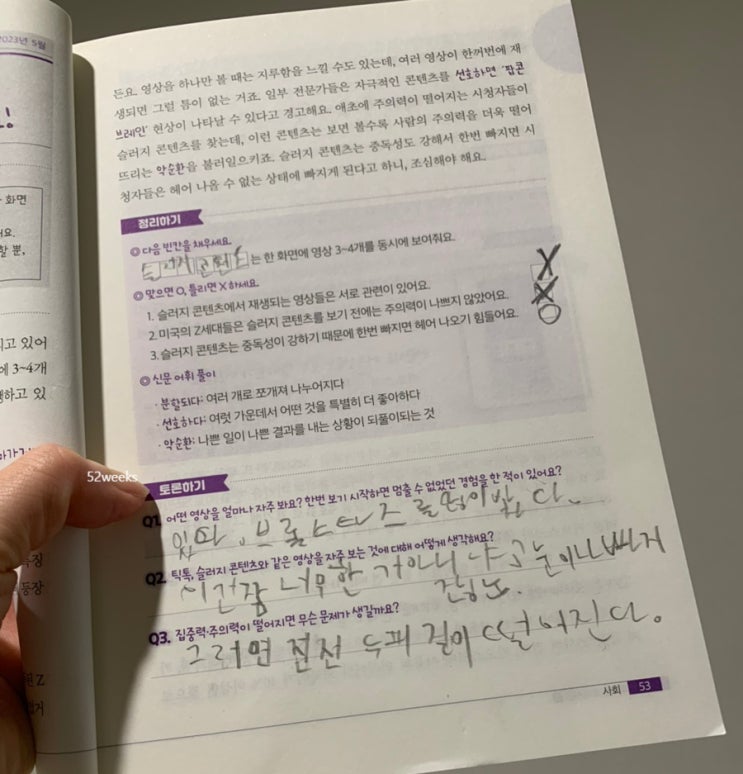 2023년 5월
든요. 영상을 하나만 볼 때는 지루함을 느낄 수도 있는데, 여러 영상이 한꺼번에 재
생되면 그럴 틈이 없는 거죠. 일부 전문가들은 자극적인 콘텐츠를 선호하면 '팝콘
브레인' 현상이 나타날 수 있다고 경고해요. 애초에 주의력이 떨어지는 시청자들이
슬러지 콘텐츠를 찾는데, 이런 콘텐츠는 보면 볼수록 사람의 주의력을 더욱 떨어
뜨리는 악순환을 불러일으키죠. 슬러지 콘텐츠는 중독성도 강해서 한번 빠지면 시
청자들은 헤어 나올 수 없는 상태에 빠지게 된다고 하니, 조심해야 해요.
정리하기
◎ 다음 빈칸을 채우세요.
슬러지 콘텐츠는 한 화면에 영상 3~4개를 동시에 보여줘요.
◎ 맞으면 O, 틀리면 X 하세요.
1. 슬러지 콘텐츠에서 재생되는 영상들은 서로 관련이 있어요. X
2. 미국의 Z세대들은 슬러지 콘텐츠를 보기 전에는 주의력이 나쁘지 않았어요. X
3. 슬러지 콘텐츠는 중독성이 강하기 때문에 한번 빠지면 헤어 나오기 힘들어요. O
◎ 신문 어휘 풀이
· 분할되다: 여러 개로 쪼개져 나누어지다
· 선호하다: 여럿 가운데서 어떤 것을 특별히 더 좋아하다
· 악순환: 나쁜 일이 나쁜 결과를 내는 상황이 되풀이되는 것
52weeks
토론하기
Q1. 어떤 영상을 얼마나 자주 봐요? 한번 보기 시작하면 멈출 수 없었던 경험을 한 적이 있어요?
있다. 브롤스타즈를 많이 봤다.
Q2. 틱톡, 슬러지 콘텐츠와 같은 영상을 자주 보는 것에 대해 어떻게 생각해요?
시간 너무한 거 아니냐고 눈이 나빠지게
Q3. 집중력·주의력이 떨어지면 무슨 문제가 생길까요?
그러면 점점 두뇌 떨어진다.
사회 53